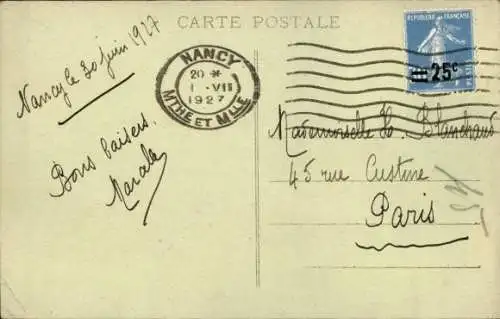 CARTE POSTALE
Nancy le 30 juin 1927
Bons baisers.
NANCY
20 *
1 - VII
1927
MTHE ET MLLE
REPUBLIQUE FRANÇAISE
25c
Mademoiselle H. Blanchard
45 rue Custine
Paris